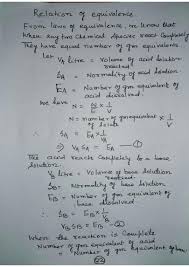 Relation of equivalence
From laws of equivalence, we know that
When any two chemical species react completely
They have equal number of gm equivalents.
Let VA Litre = Volume of acid solution
reacted.
SA = Normality of acid solution
EA = Number of gm equivalent of
acid dissolved.
We have N = W/E × 1/V
N = number of gm equivalent × 1/V
of solute
∴ SA = EA × 1/VA
⇒ VA SA = EA — ①
The acid reacts completely to a base
solution.
VB Litre = Volume of base solution
reacted
SB = Normality of base solution
EB = Number of gm equivalent of base
dissolved
∴ SB = EB × 1/VB
VB SB = EB — ②
When the reaction is complete
Number of gm equivalent of acid
= Number of gm equivalent of base